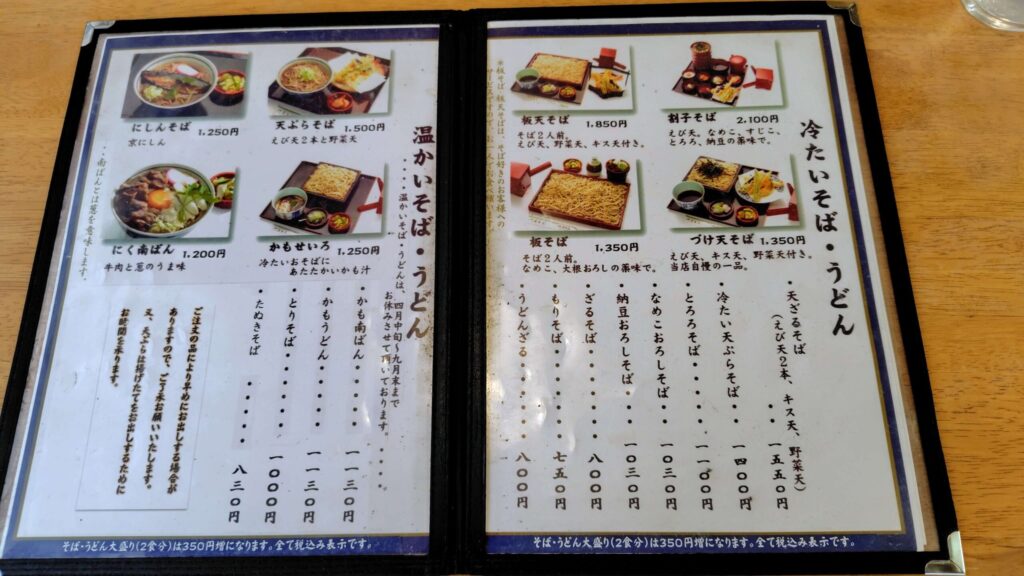 温かいそば・うどん
・・・・温かいそば・うどんは、四月中旬~九月末まで
お休みさせて頂いております。・・・・
にしんそば 1,250円
京にしん
天ぷらそば 1,500円
えび天2本と野菜天
にく南ばん 1,200円
牛肉と葱のうま味
かもせいろ 1,250円
冷たいおそばに
あたたかいかも汁
・・南ばんとは葱を意味します。
・かも南ばん・・・・一一三〇円
・かもうどん・・・・一一三〇円
・とりそば・・・・・一〇〇〇円
・たぬきそば・・・・八三〇円
ご注文の品により早めにお出しする場合が
ありますので、ご了承お願いいたします。
又、天ぷらは揚げたてをお出しするために
お時間を承ります。
そば・うどん大盛り(2食分)は350円増になります。全て税込み表示です。
冷たいそば・うどん
板天そば 1,850円
そば2人前。
えび天、野菜天、キス天付き。
割子そば 2,100円
えび天、なめこ、すじこ、
とろろ、納豆の薬味で。
板そば 1,350円
そば2人前。
なめこ、大根おろしの薬味で。
づけ天そば 1,350円
えび天、キス天、野菜天付き。
当店自慢の一品。
※板そば・板天そばは、そば好きのお客様への
・天ざるそば・・一五五〇円
(えび天2本、キス天、野菜天)
・冷たい天ぷらそば・一四〇〇円
・とろろそば・・・・一一〇〇円
・なめこおろしそば・・一〇三〇円
・納豆おろしそば・・一〇三〇円
・ざるそば・・・・・八〇〇円
・もりそば・・・・・七五〇円
・うどんざる・・・・八〇〇円
そば・うどん大盛り(2食分)は350円増になります。全て税込み表示です。